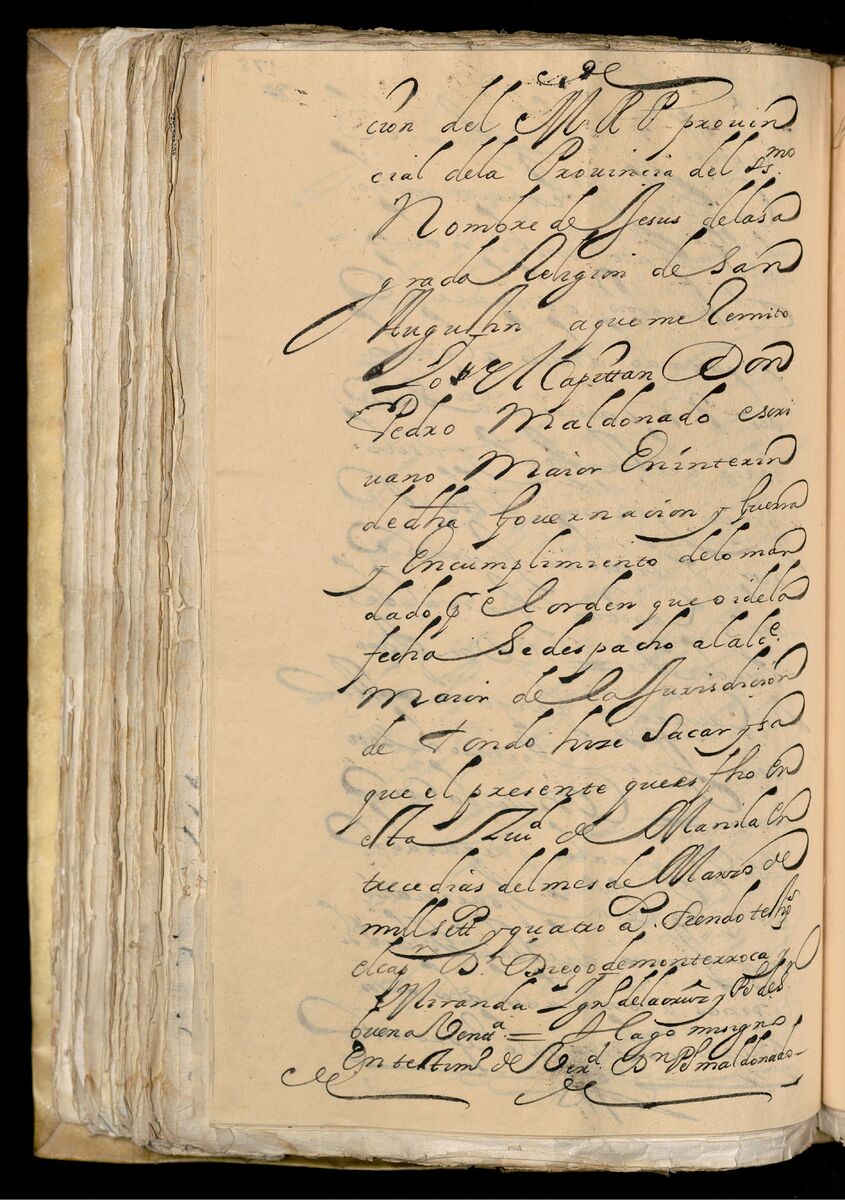 cion del M R P prouin
cial dela Prouincia del Ss.mo
Nombre de Jesus delasa
grada Religion de San
Augustin aqueme Remito
Yo el Capittan Don
Pedro Maldonado escri
uano Maior Eninterin
dedha Gouernacion y Guerra
y Encumplimiento delo man
dado p el orden que oi dela
fecha Sedespacho al alce.
Maior de la Jurisdicion
de Tondo hize Sacar y sa
que el presente quees fho En
esta Ziud de Manila En
trecedias delmes de Marzo de
mill Sett y quatro a. Siendo tesgos
elcapn Dn Diego de monterroca y
Miranda Ygn delacruz y Po de S.
buena Venta = Hago misigno
En testimo de Verd. Dn Po maldonado